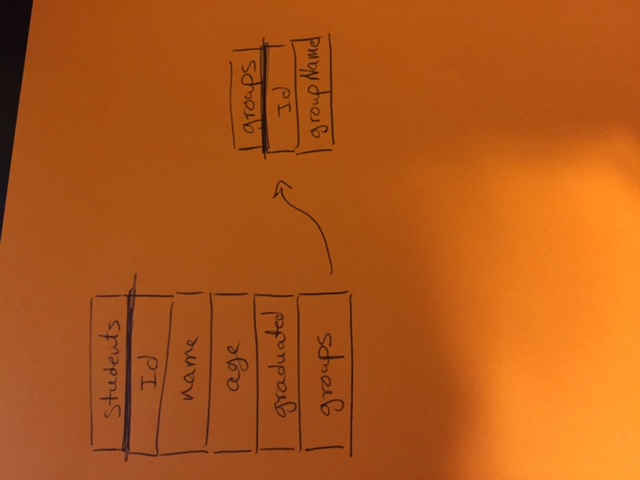 Students
Id
name
age
graduated
groups
groups
Id
groupName